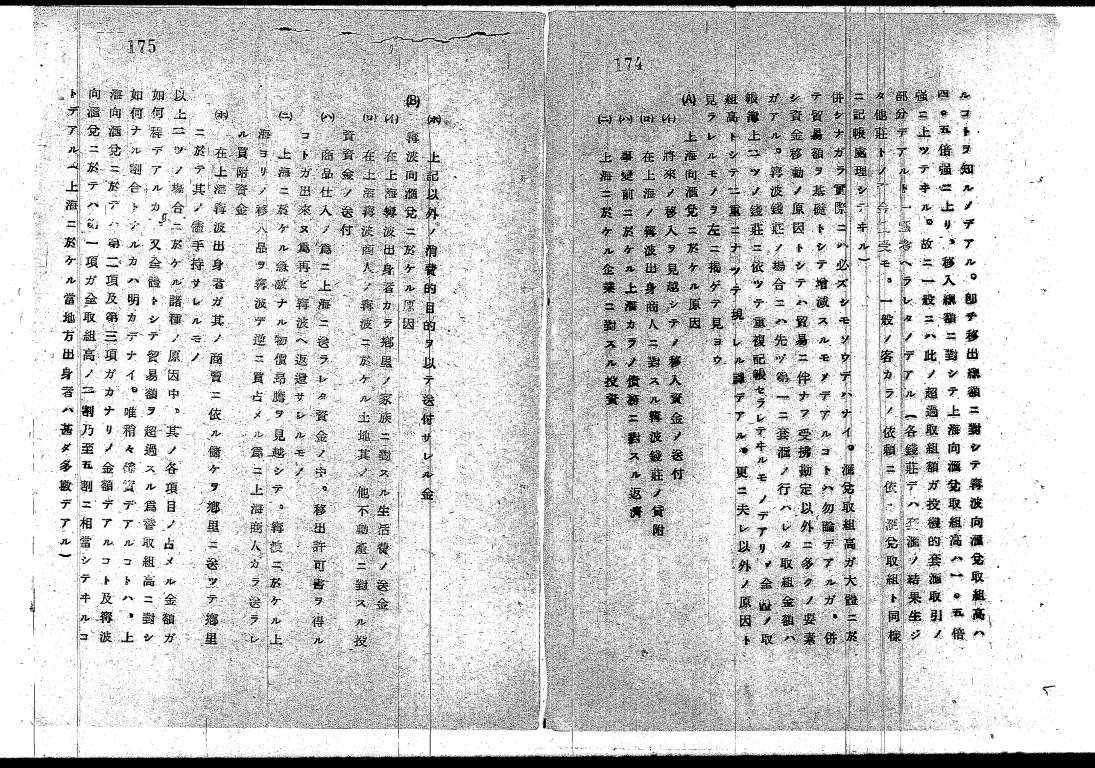 174
ルコトヲ知ルノデアル。即チ移出總額ニ對シテ寗波向滙兌取組高ハ
四。五倍强ニ上リ、移入總額ニ對シテ上海向滙兌取組高ハ一。五倍
强ニ上ツテヰル。故ニ一般ニハ此ノ超過取組額ガ投機的套滙取引ノ
部分デアルト一應考ヘラレタノデアル(各錢莊デハ套滙ノ結果生ジ
タ他莊トノ モ。一般ノ客カラノ依賴ニ依 滙兌取組ト同樣
ニ記帳處理シテヰル)
併シナガラ實際ニハ必ズシモソウデハナイ。滙兌取組高ガ大體ニ於
テ貿易額ヲ基礎トシテ增減スルモノデアルコトハ勿論デアルガ。併
シ資金移動ノ原因トシテハ貿易ニ伴ナフ受拂勘定以外ニ多クノ要素
ガアル。寗波錢莊ノ場合ニハ先ヅ第一ニ套滙ノ行ハレタ取組金額ハ
帳簿上二ツノ錢莊ニ依ツテ重複記帳セラレテヰルモノデアリ 金額ノ取
組高トシテ二重ニナツテ現レル譯デアル。更ニ夫レ以外ノ原因ト
見ラレルモノヲ左ニ揭ゲテ見ヨウ
(A) 上海向滙兌ニ於ケル原因
(イ) 將來ノ移入ヲ見越シテノ移入資金ノ送付
(ロ) 在上海ノ寗波出身商人ニ對スル寗波錢莊ノ貸附
(ハ) 事變前ニ於ケル上海カラノ債務ニ對スル返濟
(ニ) 上海ニ於ケル企業ニ對スル投資
175
(ホ) 上記以外ノ消費的目的ヲ以テ送付サレル金
(B) 寗波向滙兌ニ於ケル原因
(イ) 在上海寗波出身者カラ鄕里ノ家族ニ對スル生活費ノ送金
(ロ) 在上海寗波商人ノ寗波ニ於ケル土地其ノ他不動產ニ對スル投
資資金ノ送付
(ハ) 商品仕入ノ爲ニ上海ニ送ラレタ資金ノ中。移出許可書ヲ得ル
コトガ出來ヌ爲再ビ寗波ヘ返還サレルモノ
(ニ) 上海ニ於ケル急激ナル物價昻騰ヲ見越シテ。寗波ニ於ケル上
海ヨリノ移入品ヲ寗波デ逆ニ買占メル爲ニ上海商人カラ送ラレ
ル買附資金
(ホ) 在上海寗波出身者ガ其ノ商賣ニ依ル儲ケヲ鄕里ニ送ツテ鄕里
ニ於テ其ノ儘手持サレルモノ
以上二ツノ場合ニ於ケル諸種ノ原因中、其ノ各項目ノ占メル金額ガ
如何程デアルカ。又全體トシテ貿易額ヲ超過スル爲替取組高ニ對シ
如何ナル割合トナルカハ明カデナイ。唯稍々確實デアルコトハ。上
海向滙兌ニ於テハ第二項及第三項ガカナリノ金額デアルコト及寗波
向滙兌ニ於テハ第一項ガ全取組高ノ二割乃至五割ニ相當シテヰルコ
トデアル(上海ニ於ケル當地方出身者ハ甚ダ多數デアル)